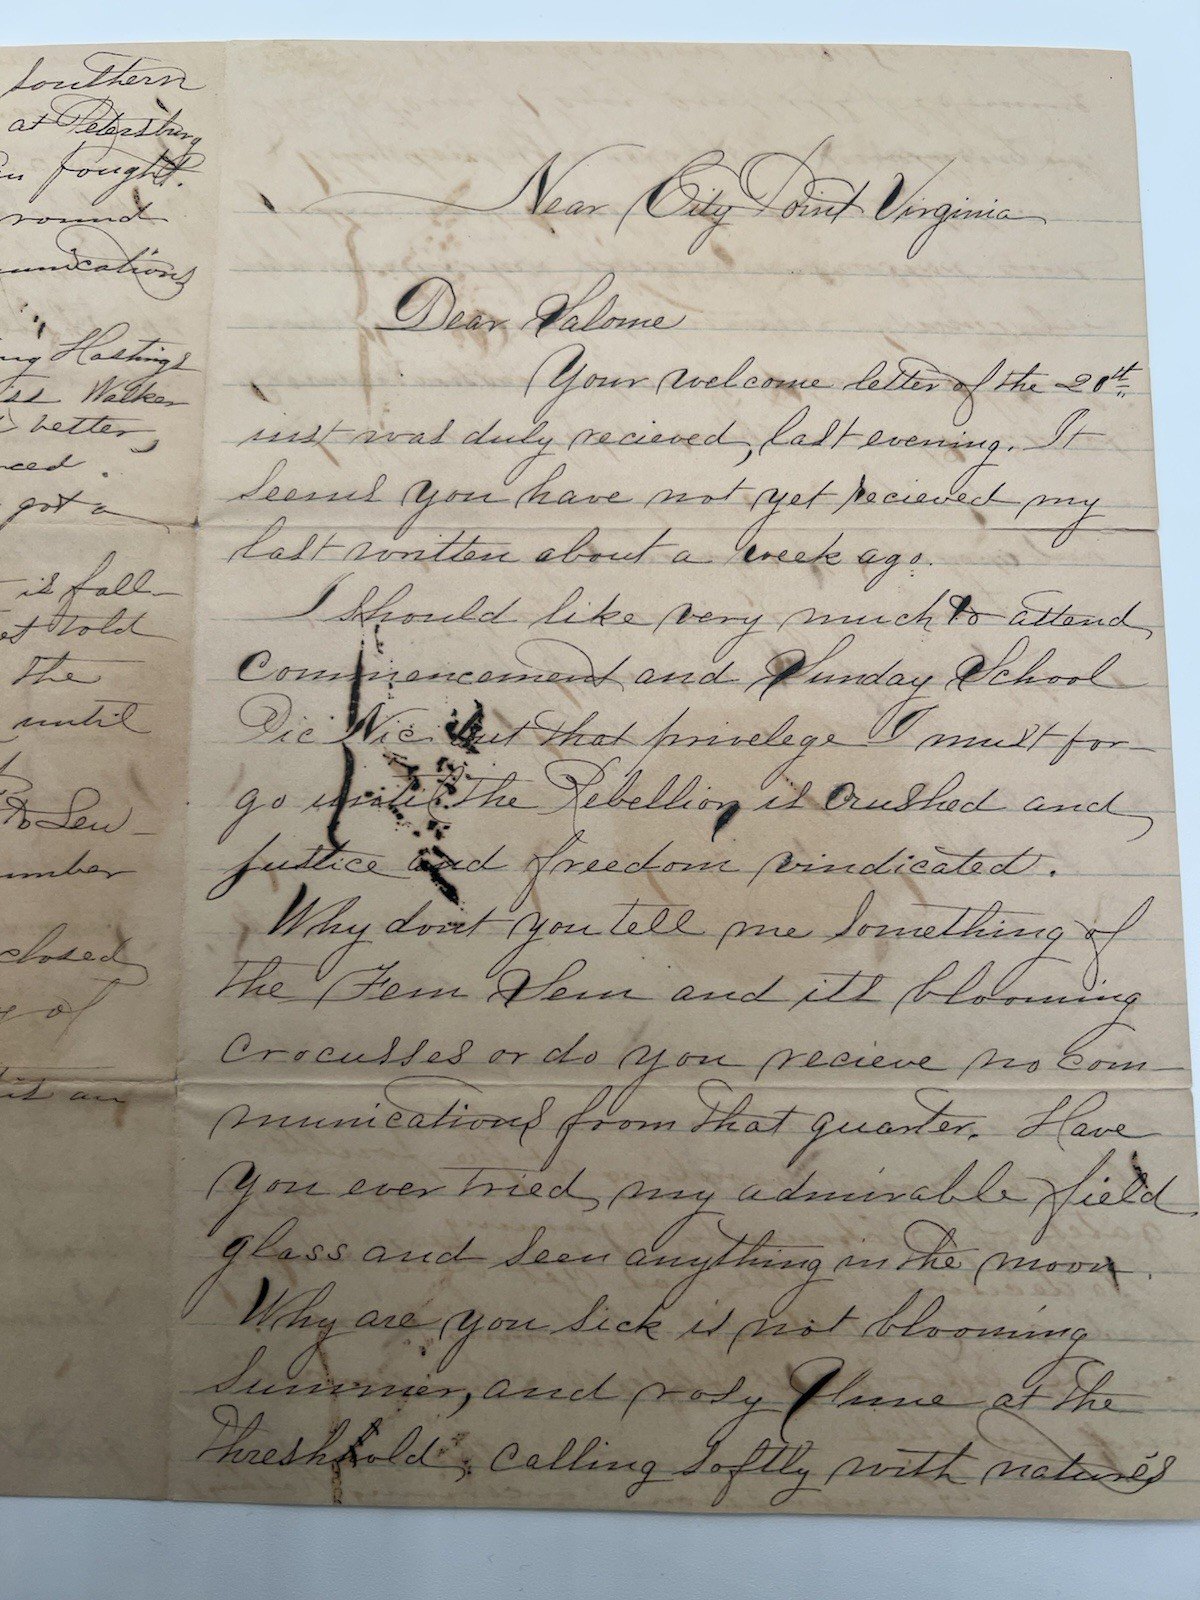 southern
at Petersburg
fought.
round
munications
Hastings
Walker
better,
got a
is fall-
told
the
until
to Lew-
umber
closed
of
it an
Near City Point Virginia
Dear Salome
Your welcome letter of the 20th
inst was duly recieved, last evening. It
seems you have not yet recieved my
last written about a week ago.
I should like very much to attend
Commencement and Sunday School
Pic Nic but that privelege I must for-
go until the Rebellion is Crushed and
justice and freedom vindicated.
Why dont you tell me something of
the Fem Sem and its blooming
crocusses or do you recieve no com-
munications from that quarter. Have
you ever tried my admirable field
glass and seen anything in the moon.
Why are you sick is not blooming
summer, and rosy June at the
threshhold, calling softly with nature's